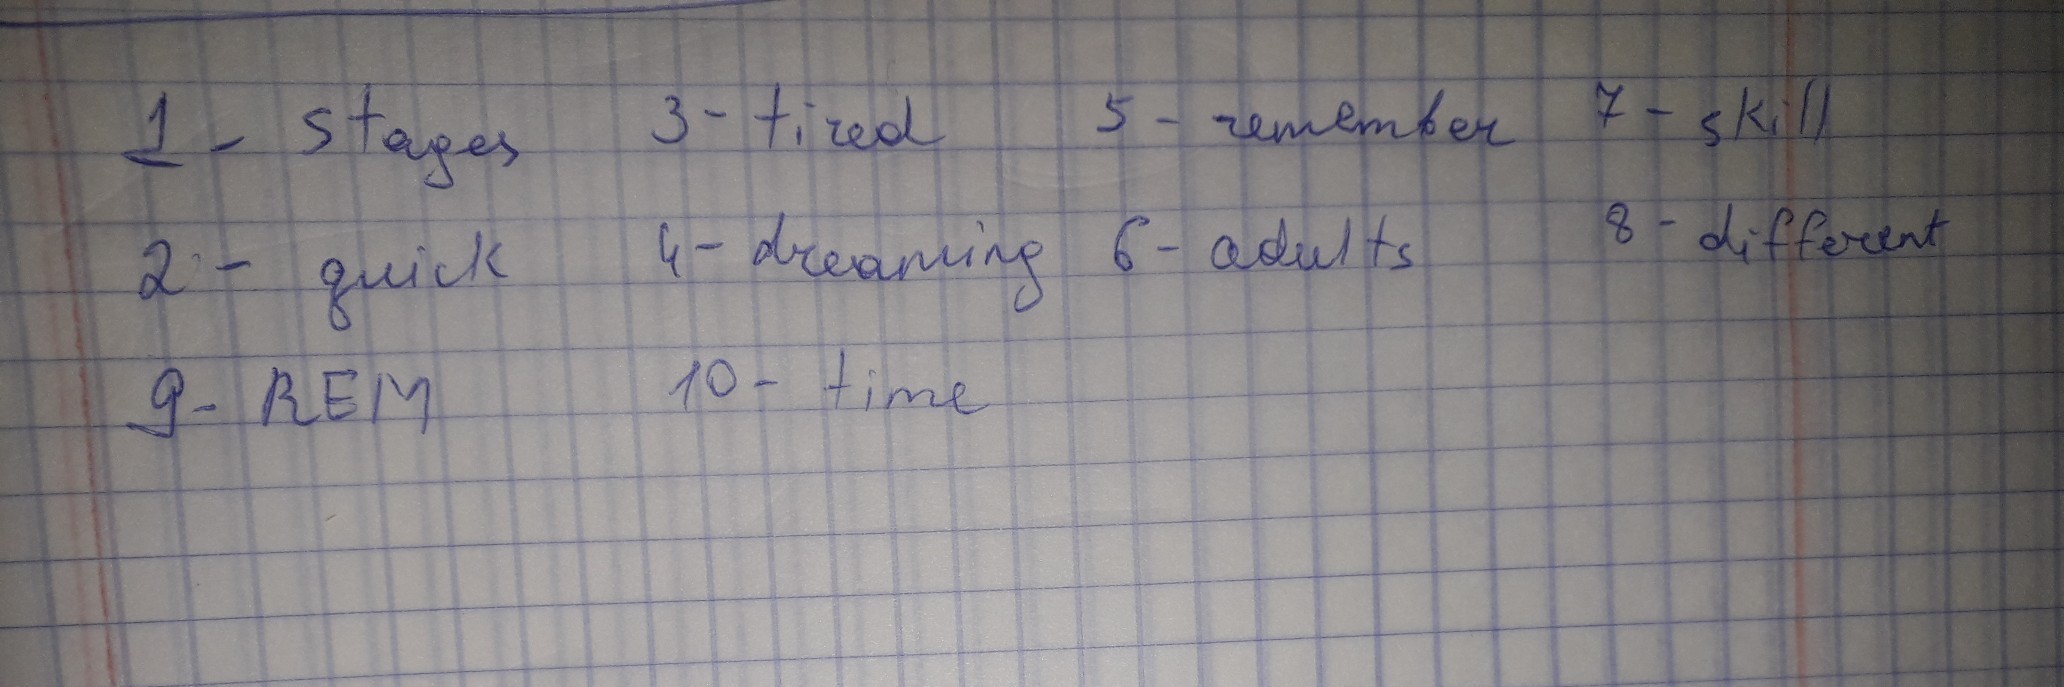 1 - stages 3 - tired 5 - remember 7 - skill
2 - quick 4 - dreaming 6 - adults 8 - different
9 - REM 10 - time